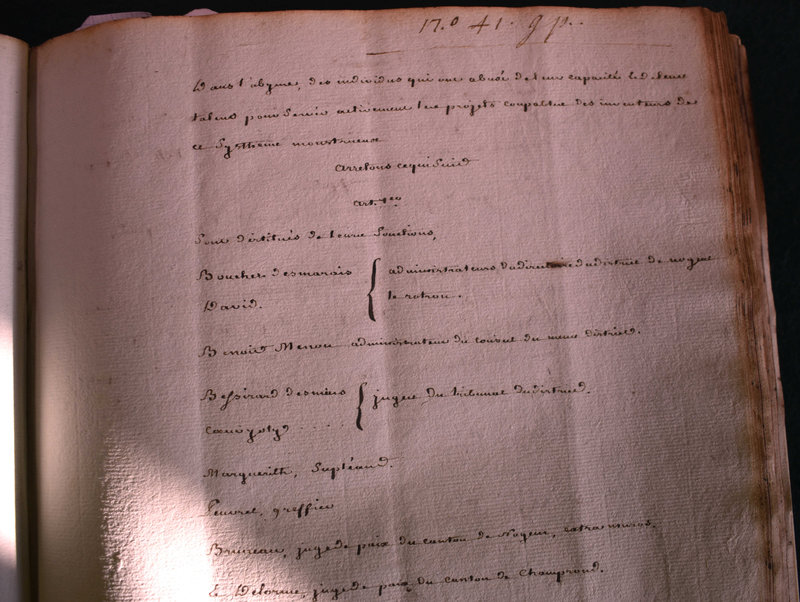 17.° 41. g p..
Dans l'abyme, des individus qui ont abusé de leur capacité et de leurs
talens pour servir activement les projets coupables des inventeurs de
ce Systhême monstrueux
arretons ce qui Suit
art. 1er
Sont déstitués de leurs fonctions,
Boucher desmarais
David.
administrateurs du directoire du district de nogent
le rotrou.
Benoit Menou administrateur du conseil du meme district.
Bessirard desmées
juges du tribunal du district.
Marguerith, Supléant.
greffier
Bruneau, juge de paix du canton de Nogent, extra muros.
Delorme, juge de paix du canton de Champrond.